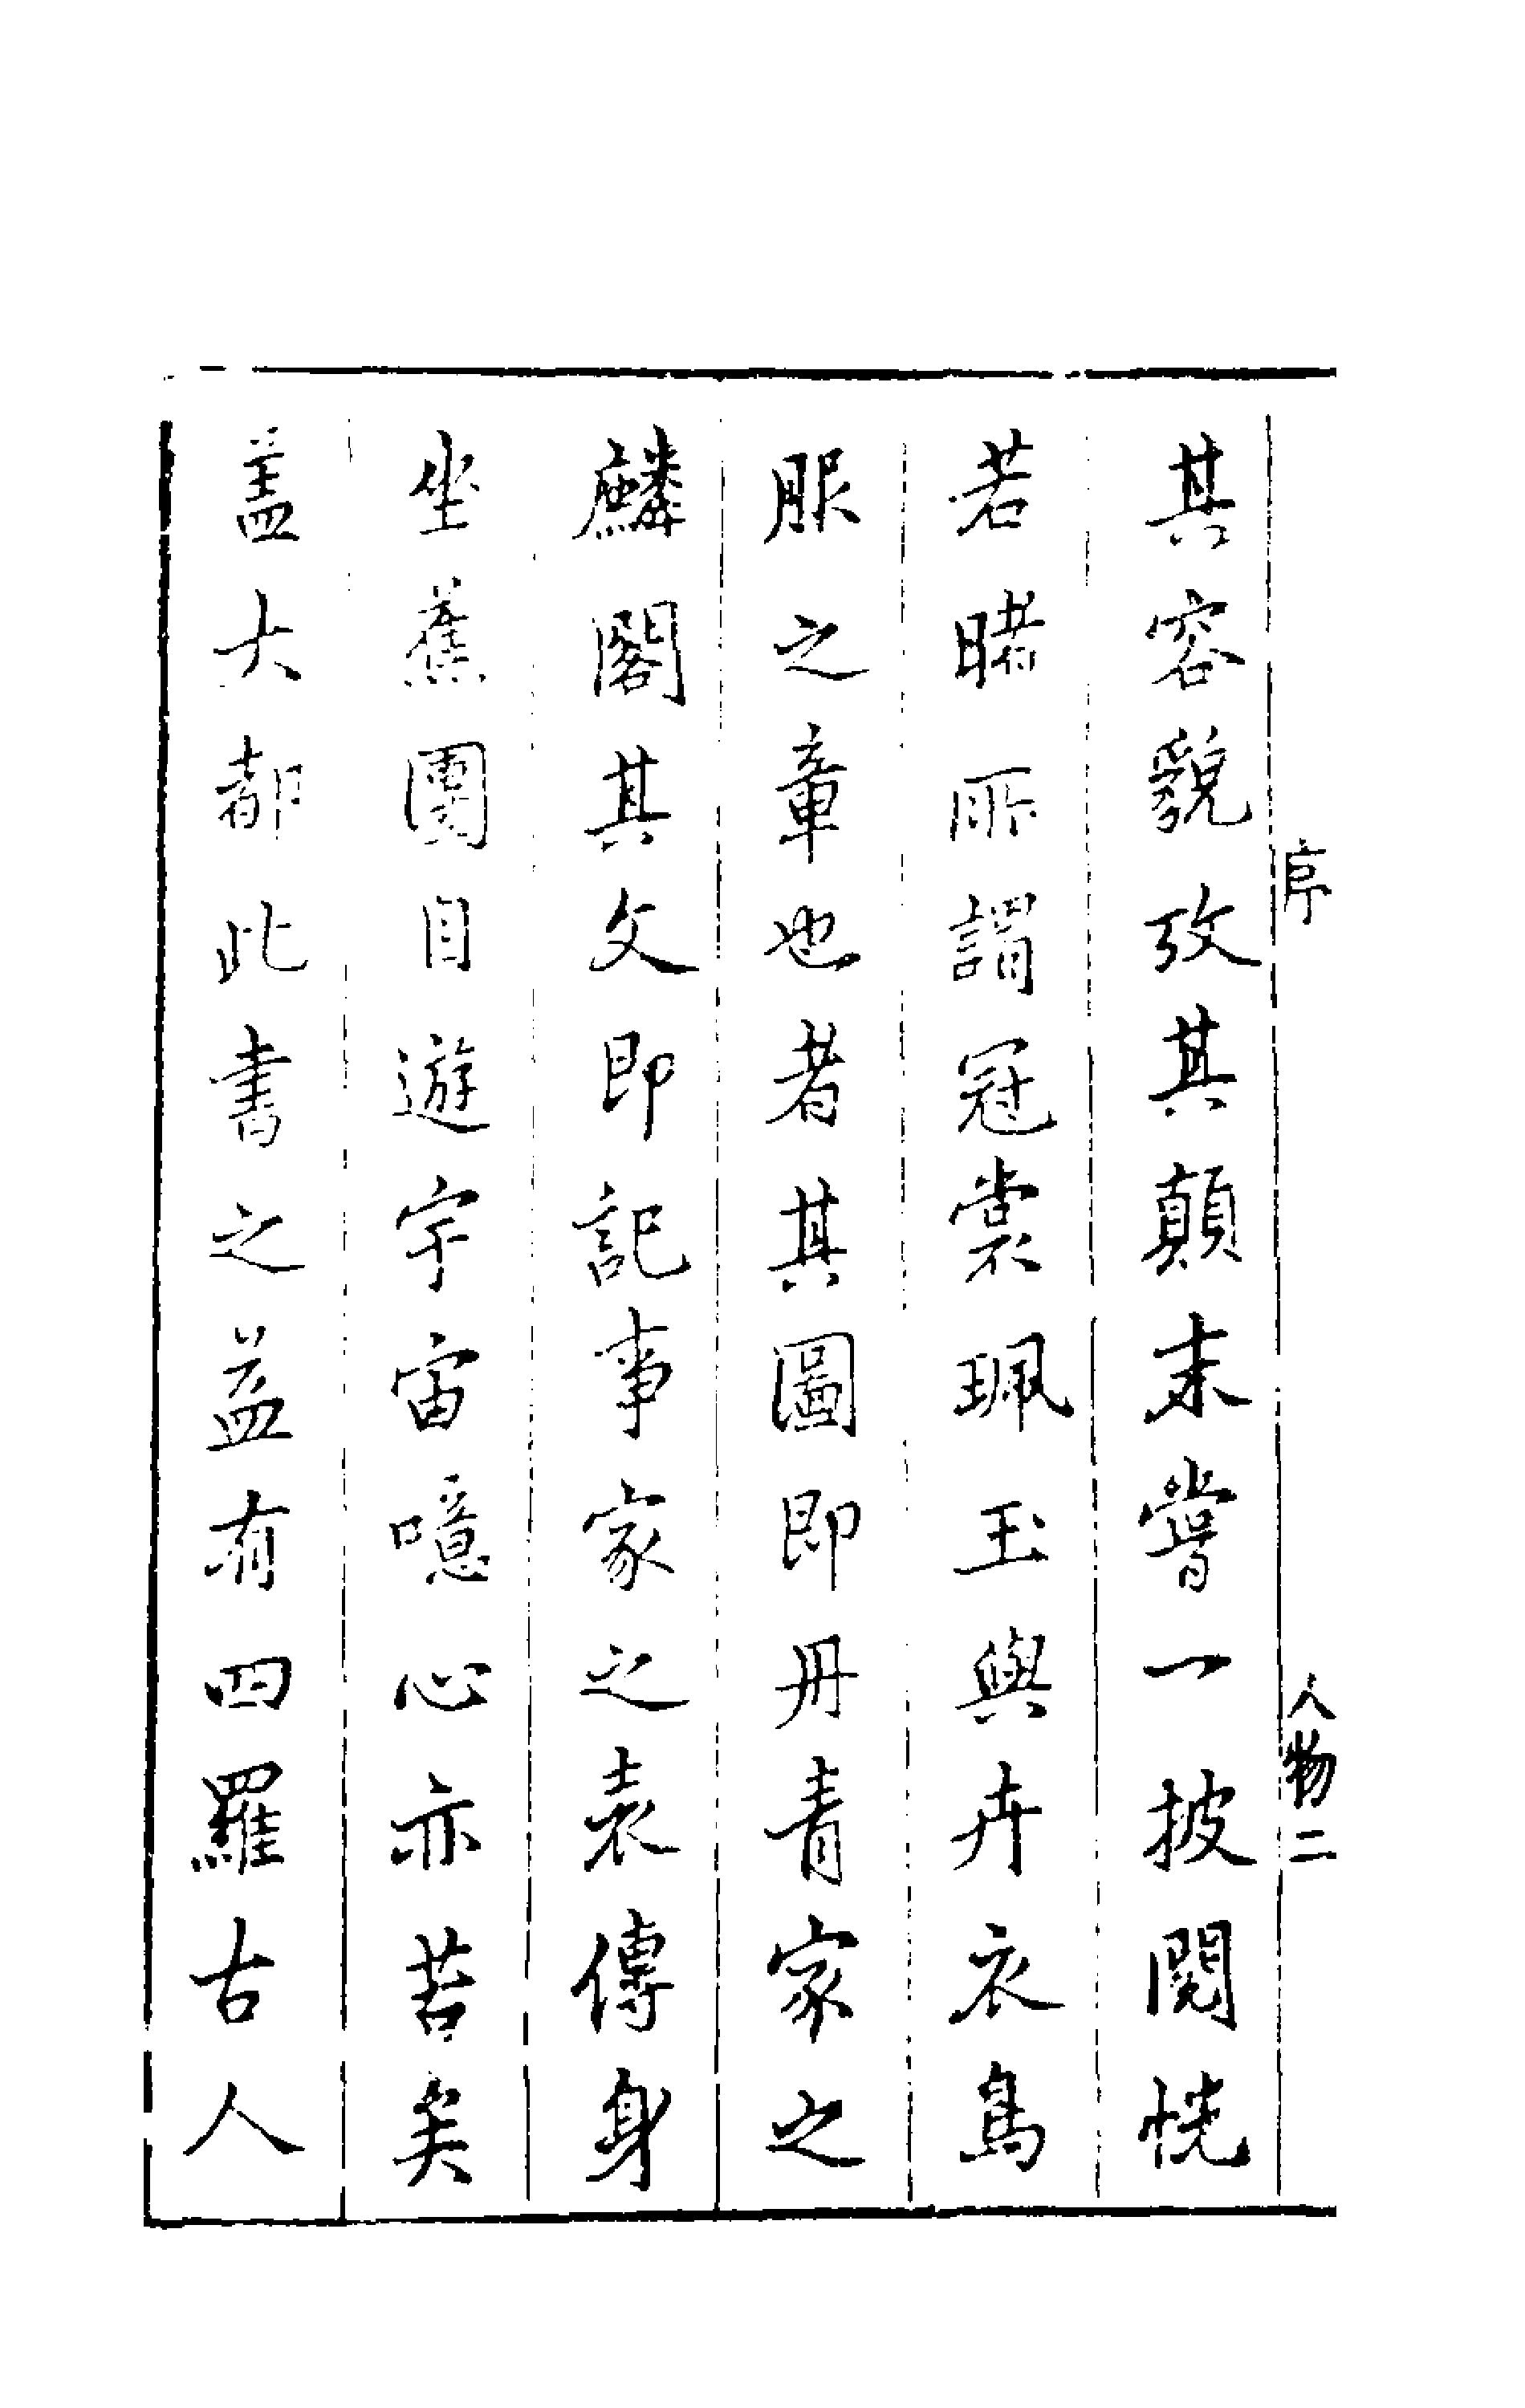 序
人物二
其容貌攷其顛末嘗一披閱恍
若睹所謂冠裳珮玉與卉衣鳥
服之章也者其圖即丹青家之
麟閣其文即記事家之袁傳身
坐蕉團目遊宇宙噫心亦苦矣
蓋大都此書之益有四羅古人